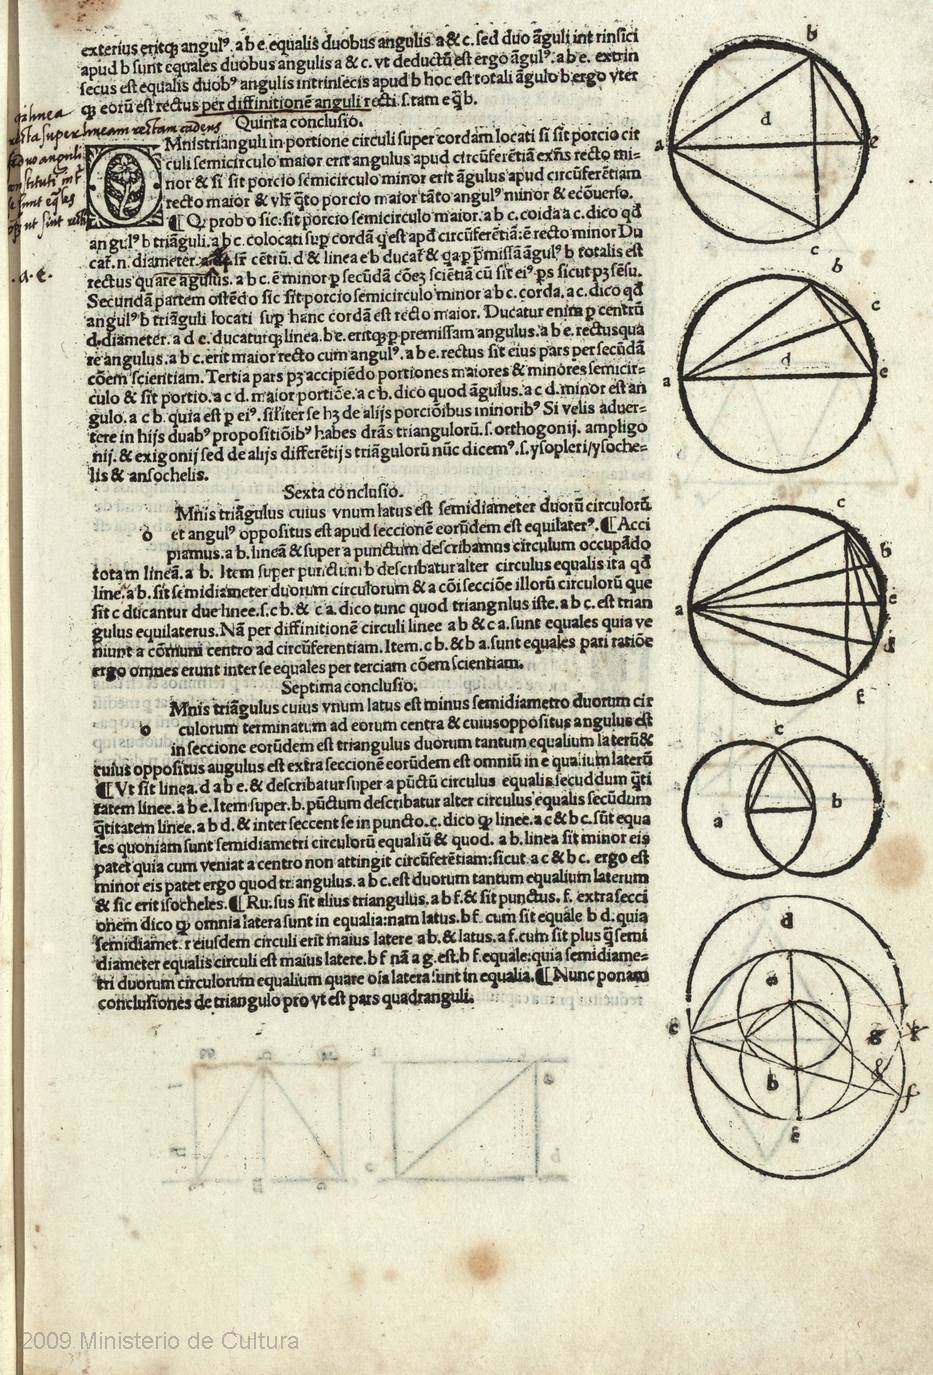 exterius eritq̃ angulꝰ. a b e. equalis duobus angulis a & c. sed duo ãguli int rinsici
apud b sunt equales duobus angulis a & c. vt deductũ est ergo ãgulꝰ. a b e. extrin
secus est equalis duobꝰ angulis intrinsecis apud b hoc est totali ãgulo b ergo vter
eorũ est rectus per diffinitionẽ anguli recti. s. tam e q̃ b.
Quinta conclusio.
OMnis trianguli in portione circuli super cordam locati si sit porcio cir
culi semicirculo maior erit angulus apud circũferẽtiã exñs recto mi=
nor & si sit porcio semicirculo minor erit ãgulus apud circũferẽtiam
recto maior & vlr̃ q̃to porcio maior tãto angulꝰ minor & ecõuerso.
¶ Q prob o sic: sit porcio semicirculo maior. a b c. corda a c. dico qđ
angulꝰ b triãguli. a b c. colocati sup cordã q̃ est apđ circũferẽtiã: ẽ recto minor Du
cat̃. n. diameter. a e. sr̃ cẽtrũ. d & linea e b ducat̃ & q̃a p p̃missã ãgulꝰ b totalis est
rectus quare ãgulus. a b c. ẽ minor p secũdã cõez sciẽtiã cũ sit eiꝰ ps sicut pꝫ sẽsu.
Secundã partem ostẽdo sic sit porcio semicirculo minor a b c. corda. a c. dico qđ
angulꝰ b triãguli locati sup hanc cordã est recto maior. Ducatur enim p centrũ
d. diameter. a d e. ducaturq̃ linea. b e. eritq̃ p premissam angulus. a b e. rectus qua
re angulus. a b c. erit maior recto cum angulꝰ. a b e. rectus sit eius pars per secũdã
cõem scientiam. Tertia pars pꝫ accipiẽdo portiones maiores & minores semicir=
culo & sit portio. a c d. maior portiõe. a c b. dico quod ãgulus. a c d. minor est an
gulo. a c b. quia est p eiꝰ. sil'iter se hꝫ de alijs porciõibus minoribꝰ Si velis aduer=
tere in hijs duabꝰ propositiõibꝰ habes dr̃as triangulorũ. s. orthogonij. ampligo
nij. & exigonij sed de alijs differẽtijs triãgulorũ nũc dicemꝰ. s. ysopleri/ysoche=
lis & ansochelis.
Sexta conclusio.
o Mnis triãgulus cuius vnum latus est semidiameter duorũ circulorũ
et angulꝰ oppositus est apud seccionẽ eorũdem est equilaterꝰ. ¶ Acci
piamus. a b. lineã & super a punctum describamus circulum occupãdo
totam lineã. a b. Item super punctum b describatur alter circulus equalis ita qđ
line. a b. sit semidiameter duorum circulorum & a cõi secciõe illorũ circulorũ que
sit c ducantur due linee. s. c b. & c a. dico tunc quod triangnlus iste. a b c. est trian
gulus equilaterus. Nã per diffinitionẽ circuli linee a b & c a. sunt equales quia ve
niunt a cõmuni centro ad circũferentiam. Item. c b. & b a. sunt equales pari ratiõe
ergo omnes erunt inter se equales per terciam cõem scientiam.
Septima conclusio.
o Mnis triãgulus cuius vnum latus est minus semidiametro duorum cir
culorum terminatum ad eorum centra & cuius oppositus angulus est
in seccione eorũdem est triangulus duorum tantum equalium laterũ &
cuius oppositus augulus est extra seccionẽ eorũdem est omniũ in e qualium laterũ
¶ Vt sit linea. d a b e. & describatur super a pũctũ circulus equalis secuddum q̃ti
tatem linee. a b e. Item super. b. pũctum describatur alter circulus equalis secũdum
q̃titatem linee. a b d. & inter seccent se in puncto. c. dico linee. a c & b c. sũt equa
les quoniam sunt semidiametri circulorũ equaliũ & quod. a b. linea sit minor eis
patet quia cum veniat a centro non attingit circũferẽtiam: sicut a c & b c. ergo est
minor eis patet ergo quod triangulus. a b c. est duorum tantum equalium laterum
& sic erit isocheles. ¶ Rursus sit alius triangulus. a b f. & sit punctus. f. extra secci
onem dico omnia latera sunt in equalia: nam latus. b f. cum sit equale b d. quia
semidiameter eiusdem circuli erit maius latere a b. & latus. a f. cum sit plus q̃ semi
diameter equalis circuli est maius latere. b f nã a g. est. b f. equale: quia semidiame=
tri duorum circulorum equalium quare oĩa latera sunt in equalia. ¶ Nunc ponam
conclusiones de triangulo pro vt est pars quadranguli.
linea
recta super lineam rectam cadens
duo anguli
. a. e.
b
d
a
e
c
b
c
d
a
e
c
b
a
e
d
f
c
a
b
d
a
c
g
b
f
e
2009 Ministerio de Cultura